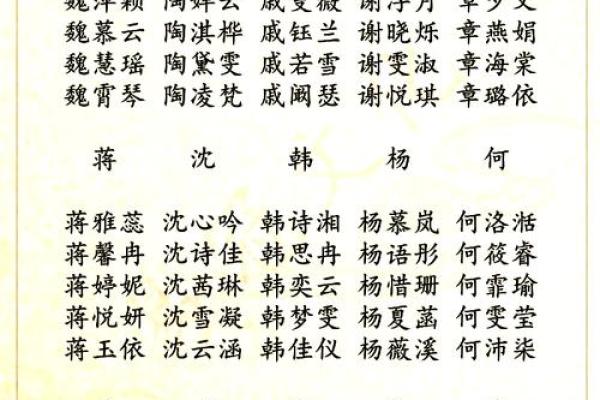 魏慕云 陶淇桦 戚钰兰 谢晓烁 章燕娟
魏慧瑶 陶黛雯 戚若雪 谢雯淑 章海棠
魏霄琴 陶凌梵 戚阙瑟 谢悦琪 章璐依
蒋 沈 韩 杨 何
蒋雅蕊 沈心吟 韩诗湘 杨慕岚 何洛湉
蒋馨冉 沈诗佳 韩思冉 杨语彤 何筱睿
蒋婷妮 沈茜琳 韩奕云 杨惜珊 何霏瑜
蒋悦妍 沈雪凝 韩梦雯 杨夏菡 何雯莹
蒋玉依 沈云涵 韩佳仪 杨薇溪 何沛柒